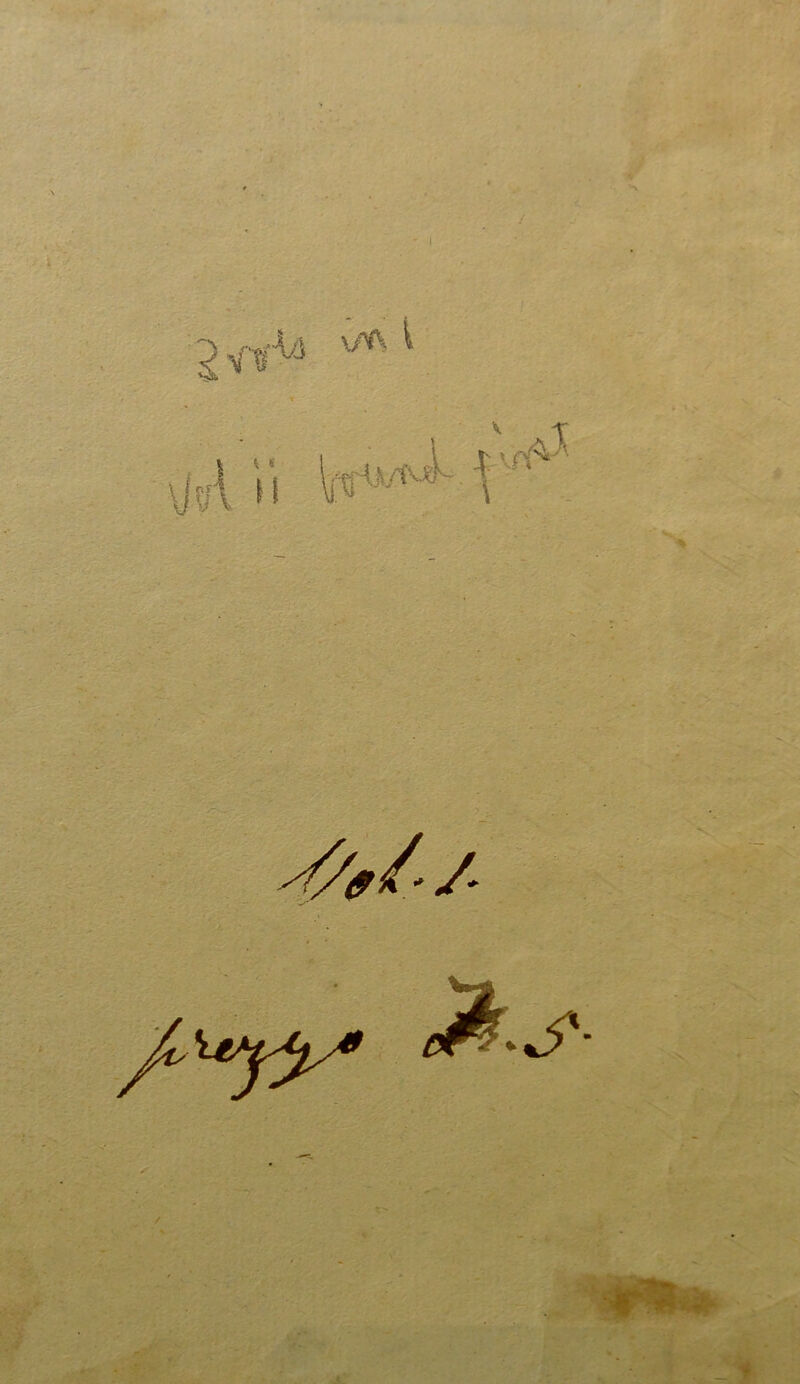 2 vols in 1
Vol ii bound first
Vol. 1.
prezzo